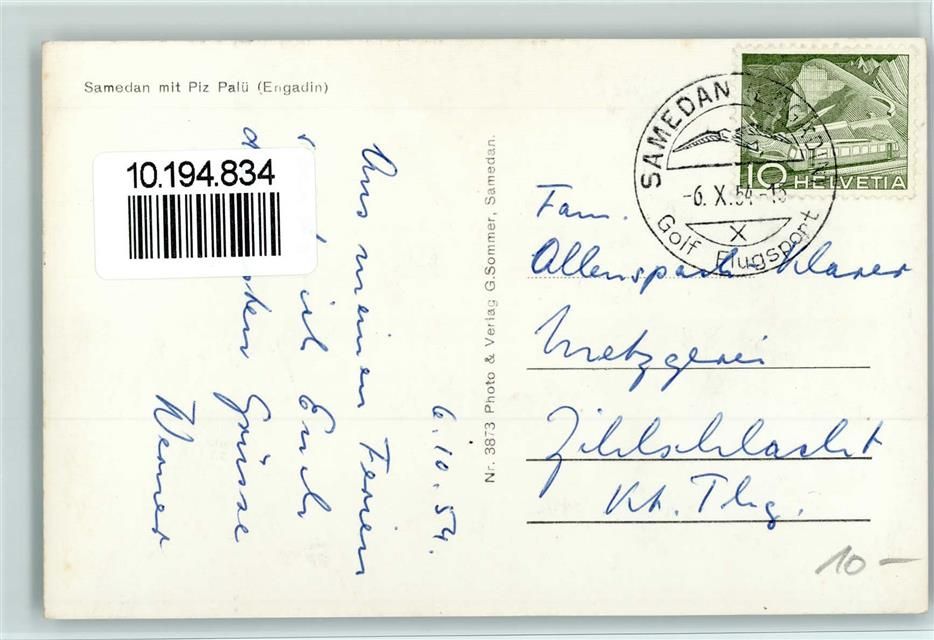 Samedan mit Piz Palü (Engadin)
10.194.834
6.10.54.
Aus meinen Ferien
ich Euch
Grüsse
Werner
Nr. 3873 Photo & Verlag G.Sommer, Samedan.
SAMEDAN ENGADIN
-6. X. 54.-
X
Golf Flugsport
10 HELVETIA
Fam.
Allenspach-Klarer
Metzgerei
Zihlschlacht
Kt. Thg.
10 -